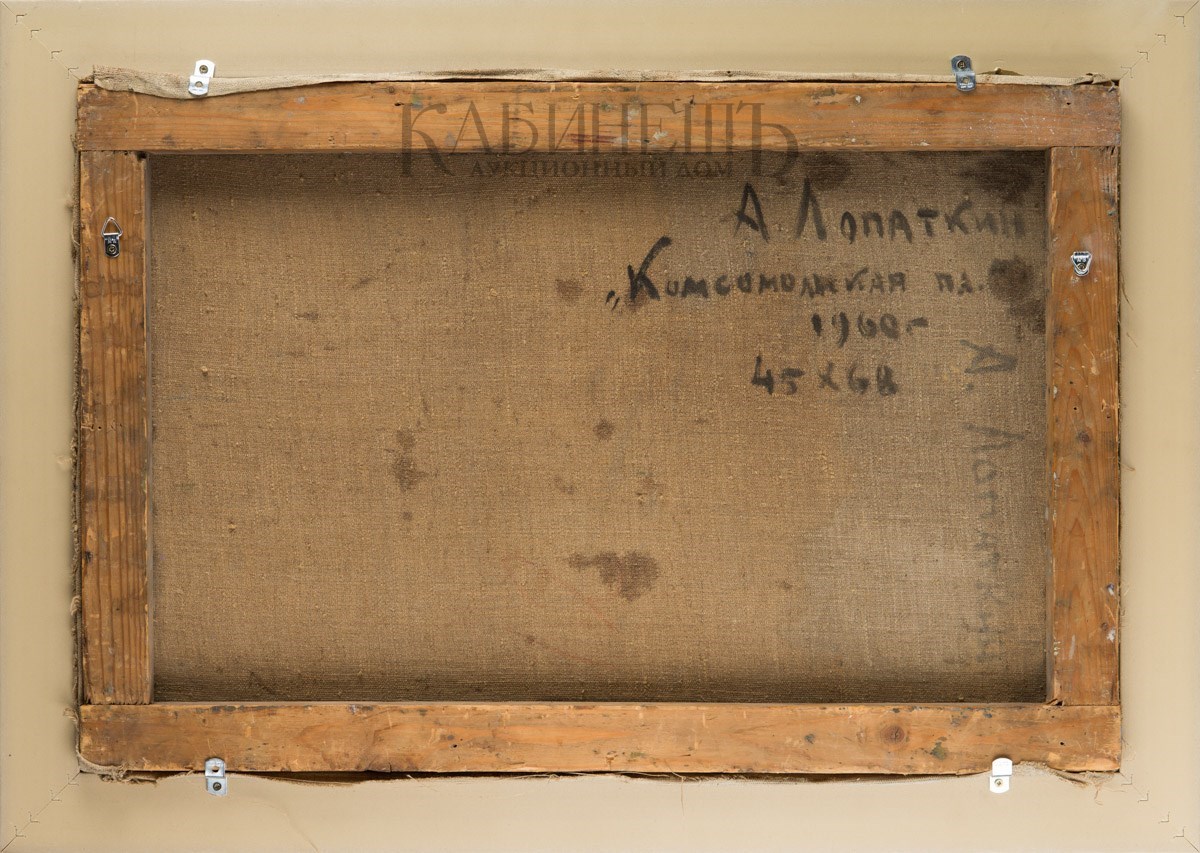 КАБИНЕТЪ
АУКЦИОННЫЙ ДОМ
А. Лопаткин
„Комсомольская пл.
1960 г
45 х 68
А. Лопаткин